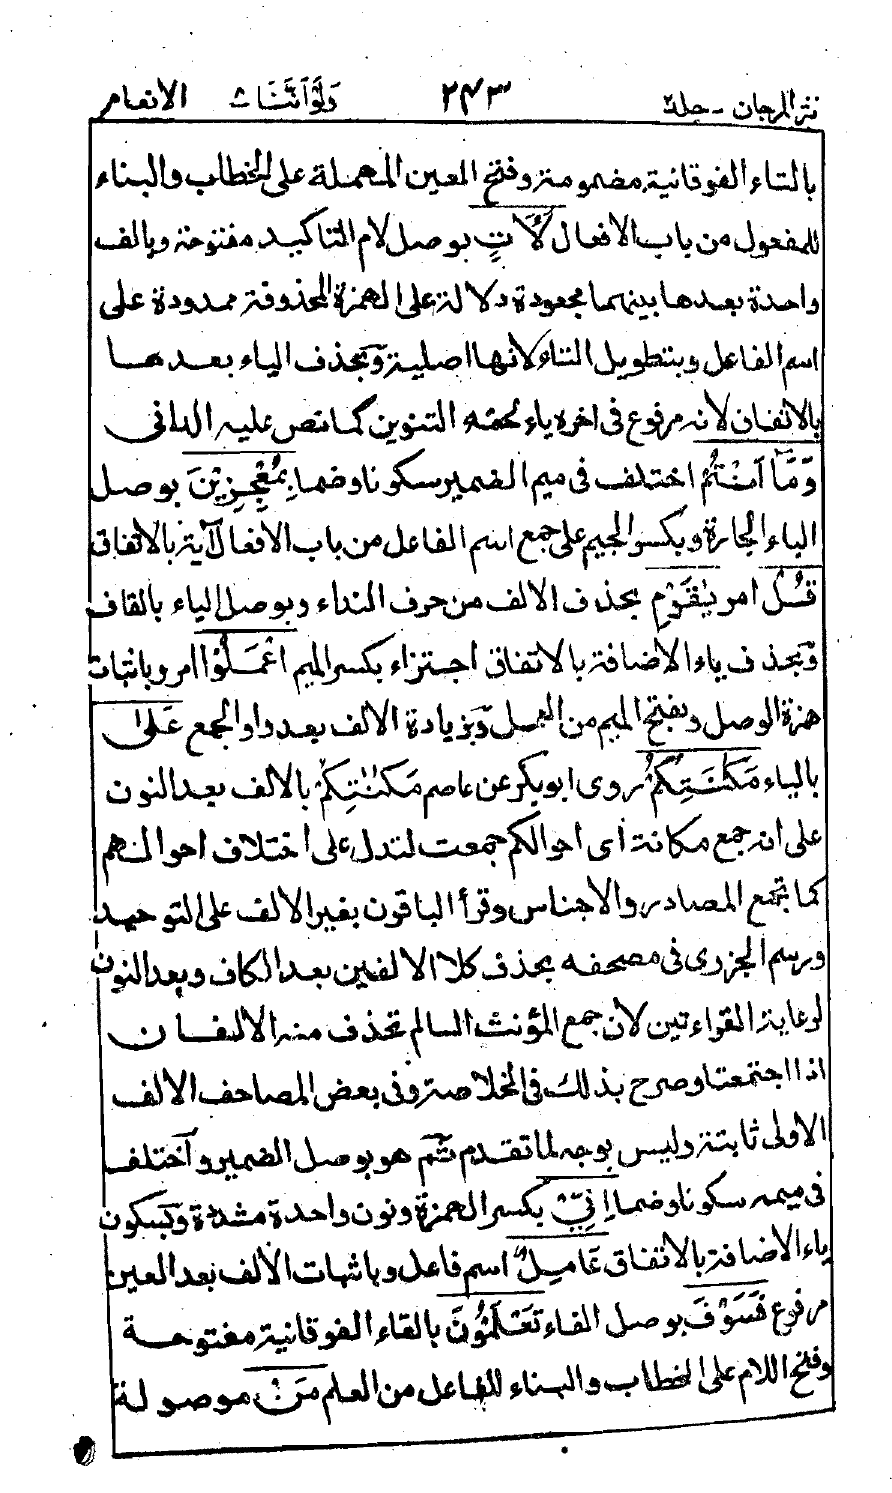 نثر المرجان - جلد ٢٤٣ ولو اننا ث الانعام
بالتاء الفوقانية مضمومة وفتح العين المهملة على الخطاب والبناء
للمفعول من باب الافعال لَاٰتٍ بوصل لام التاكيد مفتوحة وبالف
واحدة بعدها بينهما مجعودة دلالة على الهمزة المحذوفة ممدودة على
اسم الفاعل وبتطويل التاء لانها اصلية وَبحذف الياء بعدها
بالاتفاق لانه مرفوع فى اخره ياء لحقه التنوين كما نص عليه الدانى
وَمَّا اَنْتُمْ اختلف فى ميم الضمير سكونا وضما بِمُعْجِزِيْنَ بوصل
الباء الجارة وبكسر الجيم على جمع اسم الفاعل من باب الافعال اٰية بالاتفاق
قُلْ امر يٰقَوْمِ بحذف الالف من حرف النداء وبوصل الياء بالقاف
وَبحذف ياء الاضافة بالاتفاق اجتزاء بكسر الميم اعْمَلُوْا امر وباثبات
همزة الوصل وبفتح الميم من العمل وَبزيادة الالف بعد واو الجمع عَلٰى
بالياء مَكَانَتِكُمْ روى ابو بكر عن عاصم مَكٰنٰتِكُمْ بالالف بعد النون
على انه جمع مكانة اى احوالكم جمعت لتدل على اختلاف احوالهم
كما تجمع المصادر والاجناس وقرأ الباقون بغير الالف على التوحيد
ورسم الجزرى فى مصحفه بحذف كلا الالفين بعد الكاف وبعد النون
لرعاية القراءتين لان جمع المؤنث السالم تحذف منه الالفان
اذا اجتمعتا وصرح بذلك فى الخلاصة وفى بعض المصاحف الالف
الاولى ثابتة وليس بوجه لما تقدم ثَم هو بوصل الضمير واختلف
فى ميمه سكونا وضما اِنِّىْ بكسر الهمزة ونون واحدة مشددة وَبسكون
ياء الاضافة بالاتفاق عَامِلٌ اسم فاعل وباثبات الالف بعد العين
مرفوع فَسَوْفَ بوصل الفاء تَعْلَمُوْنَ بالتاء الفوقانية مفتوحة
وفتح اللام على الخطاب والبناء للفاعل من العلم مَنْ موصولة